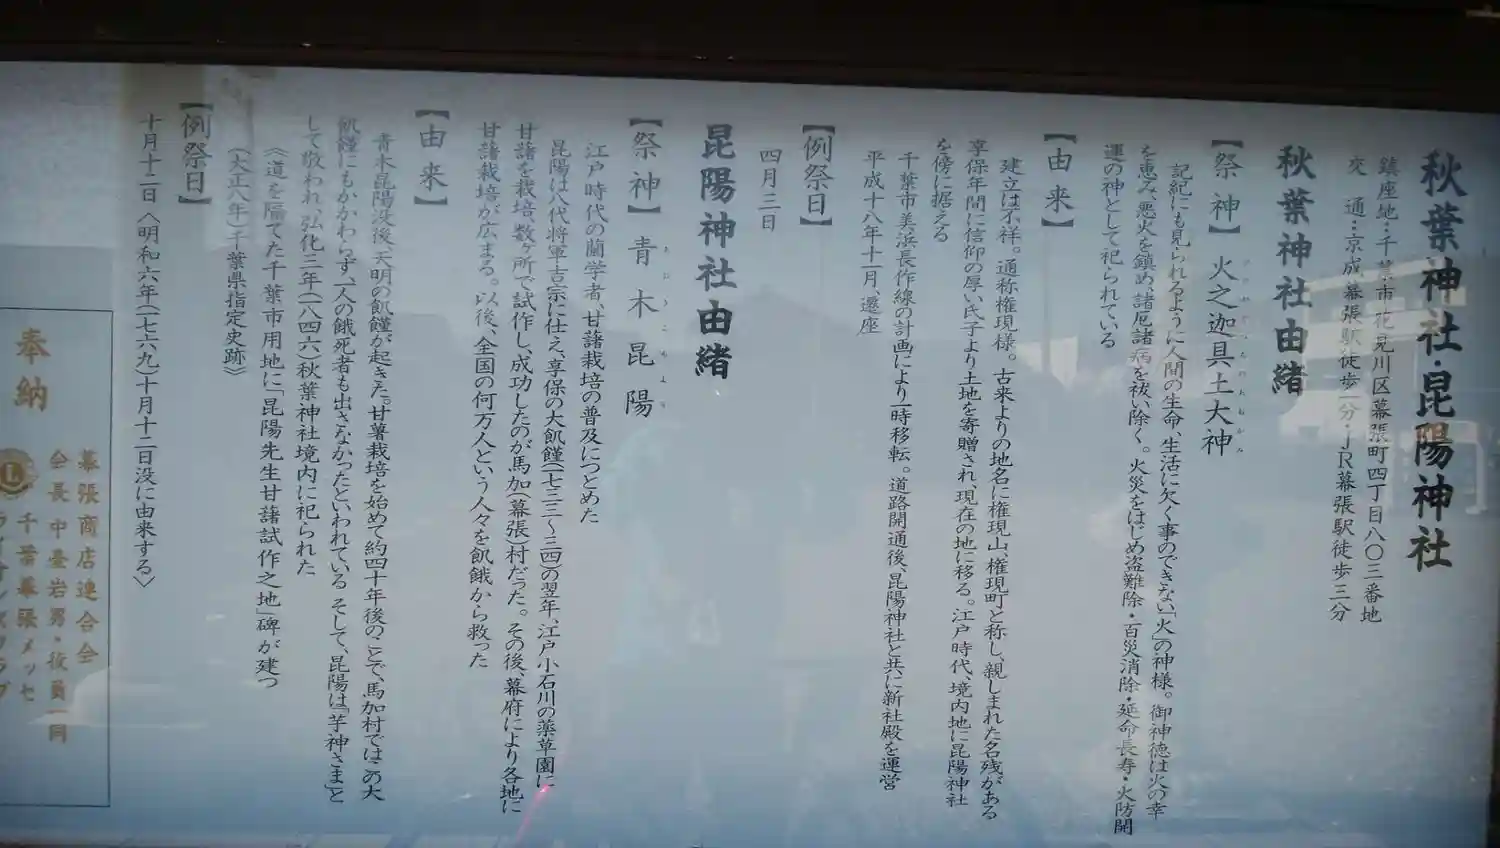 秋葉神社・昆陽神社
鎮座地：千葉市花見川区幕張町四丁目八〇三番地
交　通：京成幕張駅徒歩一分・JR幕張駅徒歩三分
秋葉神社由緒
【祭神】火之迦具土大神
記紀にも見られるように人間の生命、生活に欠く事のできない「火」の神様。御神徳は火の幸
を恵み、悪火を鎮め、諸厄諸病を祓い除く。火災をはじめ盗難除・百災消除・延命長寿・火防開
運の神として祀られている
【由来】
建立は不祥。通称権現様。古来よりの地名に権現山、権現町と称し、親しまれた名残がある
享保年間に信仰の厚い氏子より土地を寄贈され、現在の地に移る。江戸時代、境内地に昆陽神社
を傍に据える
千葉市美浜長作線の計画により一時移転。道路開通後、昆陽神社と共に新社殿を運営
平成十八年十一月、遷座
【例祭日】
四月三日
昆陽神社由緒
【祭神】青木昆陽
江戸時代の蘭学者、甘藷栽培の普及につとめた
昆陽は八代将軍吉宗に仕え、享保の大飢饉（一七三三～三四）の翌年、江戸小石川の薬草園に
甘藷を栽培、数ヶ所で試作し、成功したのが馬加（幕張）村だった。その後、幕府により各地に
甘藷栽培が広まる。以後、全国の何万人という人々を飢餓から救った
【由来】
青木昆陽没後、天明の飢饉が起きた。甘薯栽培を始めて約四十年後のことで、馬加村ではこの大
飢饉にもかかわらず、一人の餓死者も出さなかったといわれている そして、昆陽は「芋神さま」と
して敬われ、弘化三年（一八四六）秋葉神社境内に祀られた
〈道を隔てた千葉市用地に「昆陽先生甘藷試作之地」碑が建つ
（大正八年）千葉県指定史跡〉
【例祭日】
十月十二日〈明和六年（一七六九）十月十二日没に由来する〉
奉納
幕張商店連合会
会長 中臺岩男・役員一同
千葉幕張メッセ
ライオンズクラブ